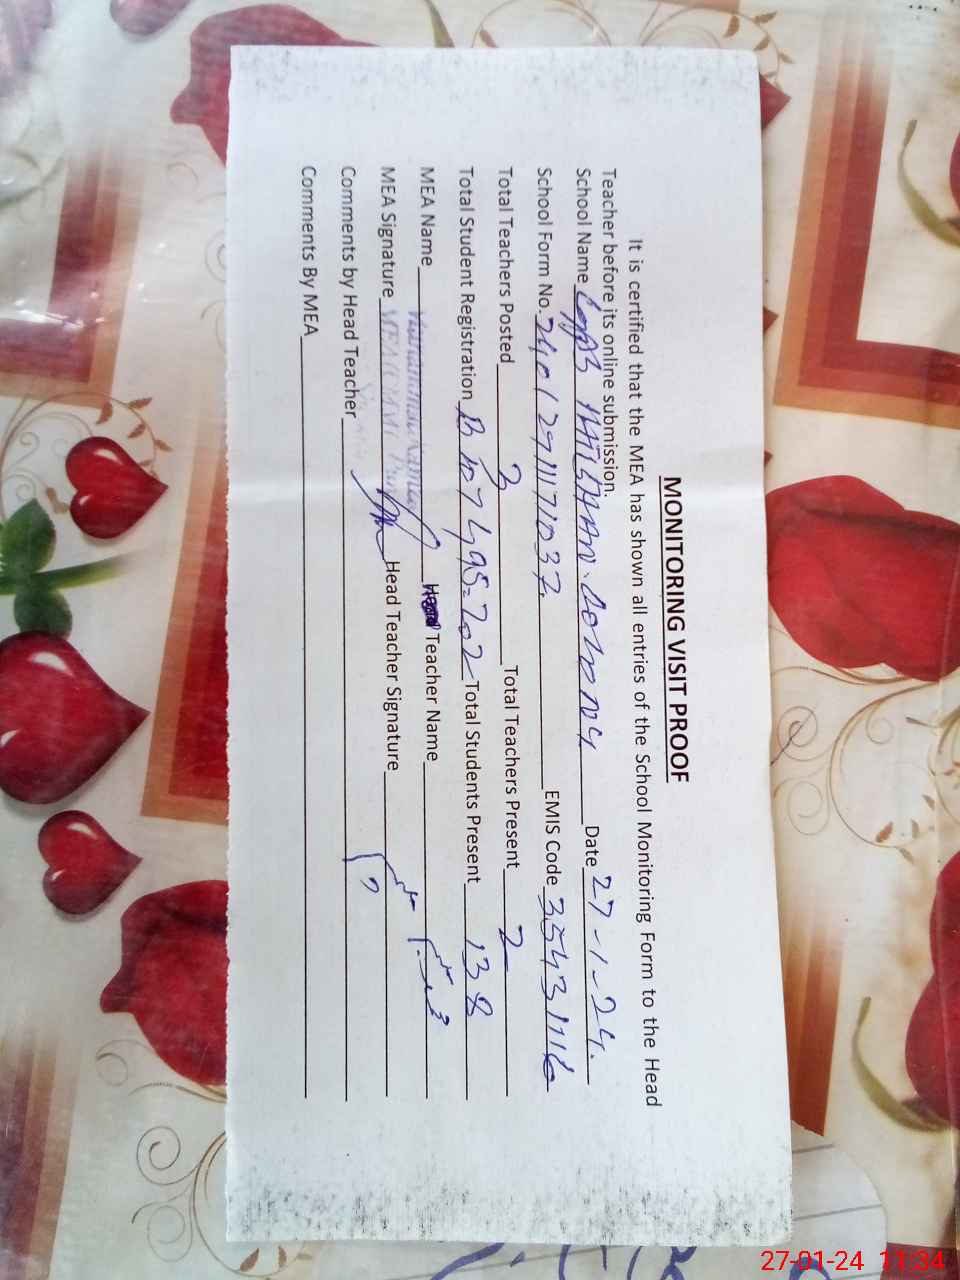 MONITORING VISIT PROOF
It is certified that the MEA has shown all entries of the School Monitoring Form to the Head
Teacher before its online submission.
School Name Date 27-1-24.
School Form No. EMIS Code 35431116
Total Teachers Posted Total Teachers Present 2
Total Student Registration B 107 G 95=202 Total Students Present 138
MEA Name Teacher Name
MEA Signature Head Teacher Signature
Comments by Head Teacher
Comments By MEA
27-01-24 11:34